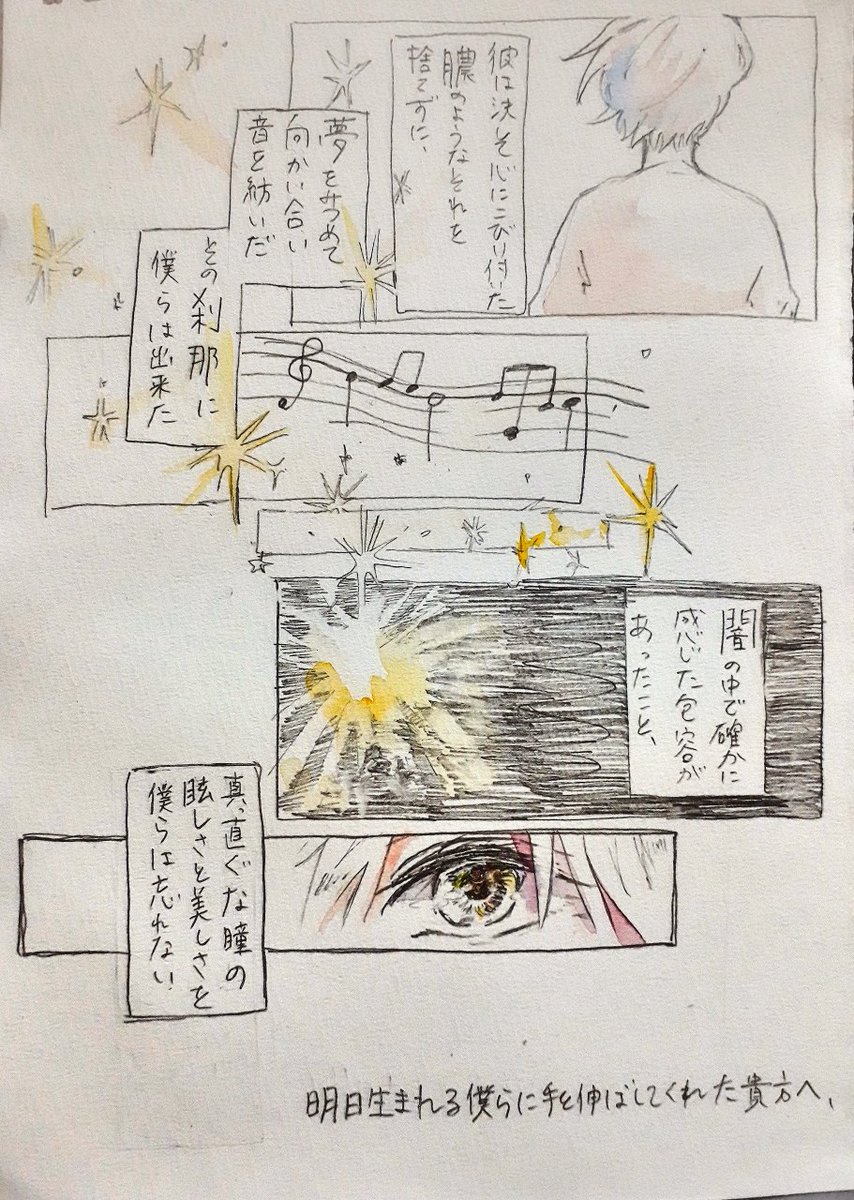 彼は決して心にこびり付いた
膿のようなそれを
捨てずに、
夢をみつめて
向かい合い
音を紡いだ
その刹那に
僕らは出来た
闇の中で確かに
感じた包容が
あったこと、
真っ直ぐな瞳の
眩しさと美しさを
僕らは忘れない
明日生まれる僕らに手を伸ばしてくれた貴方へ、